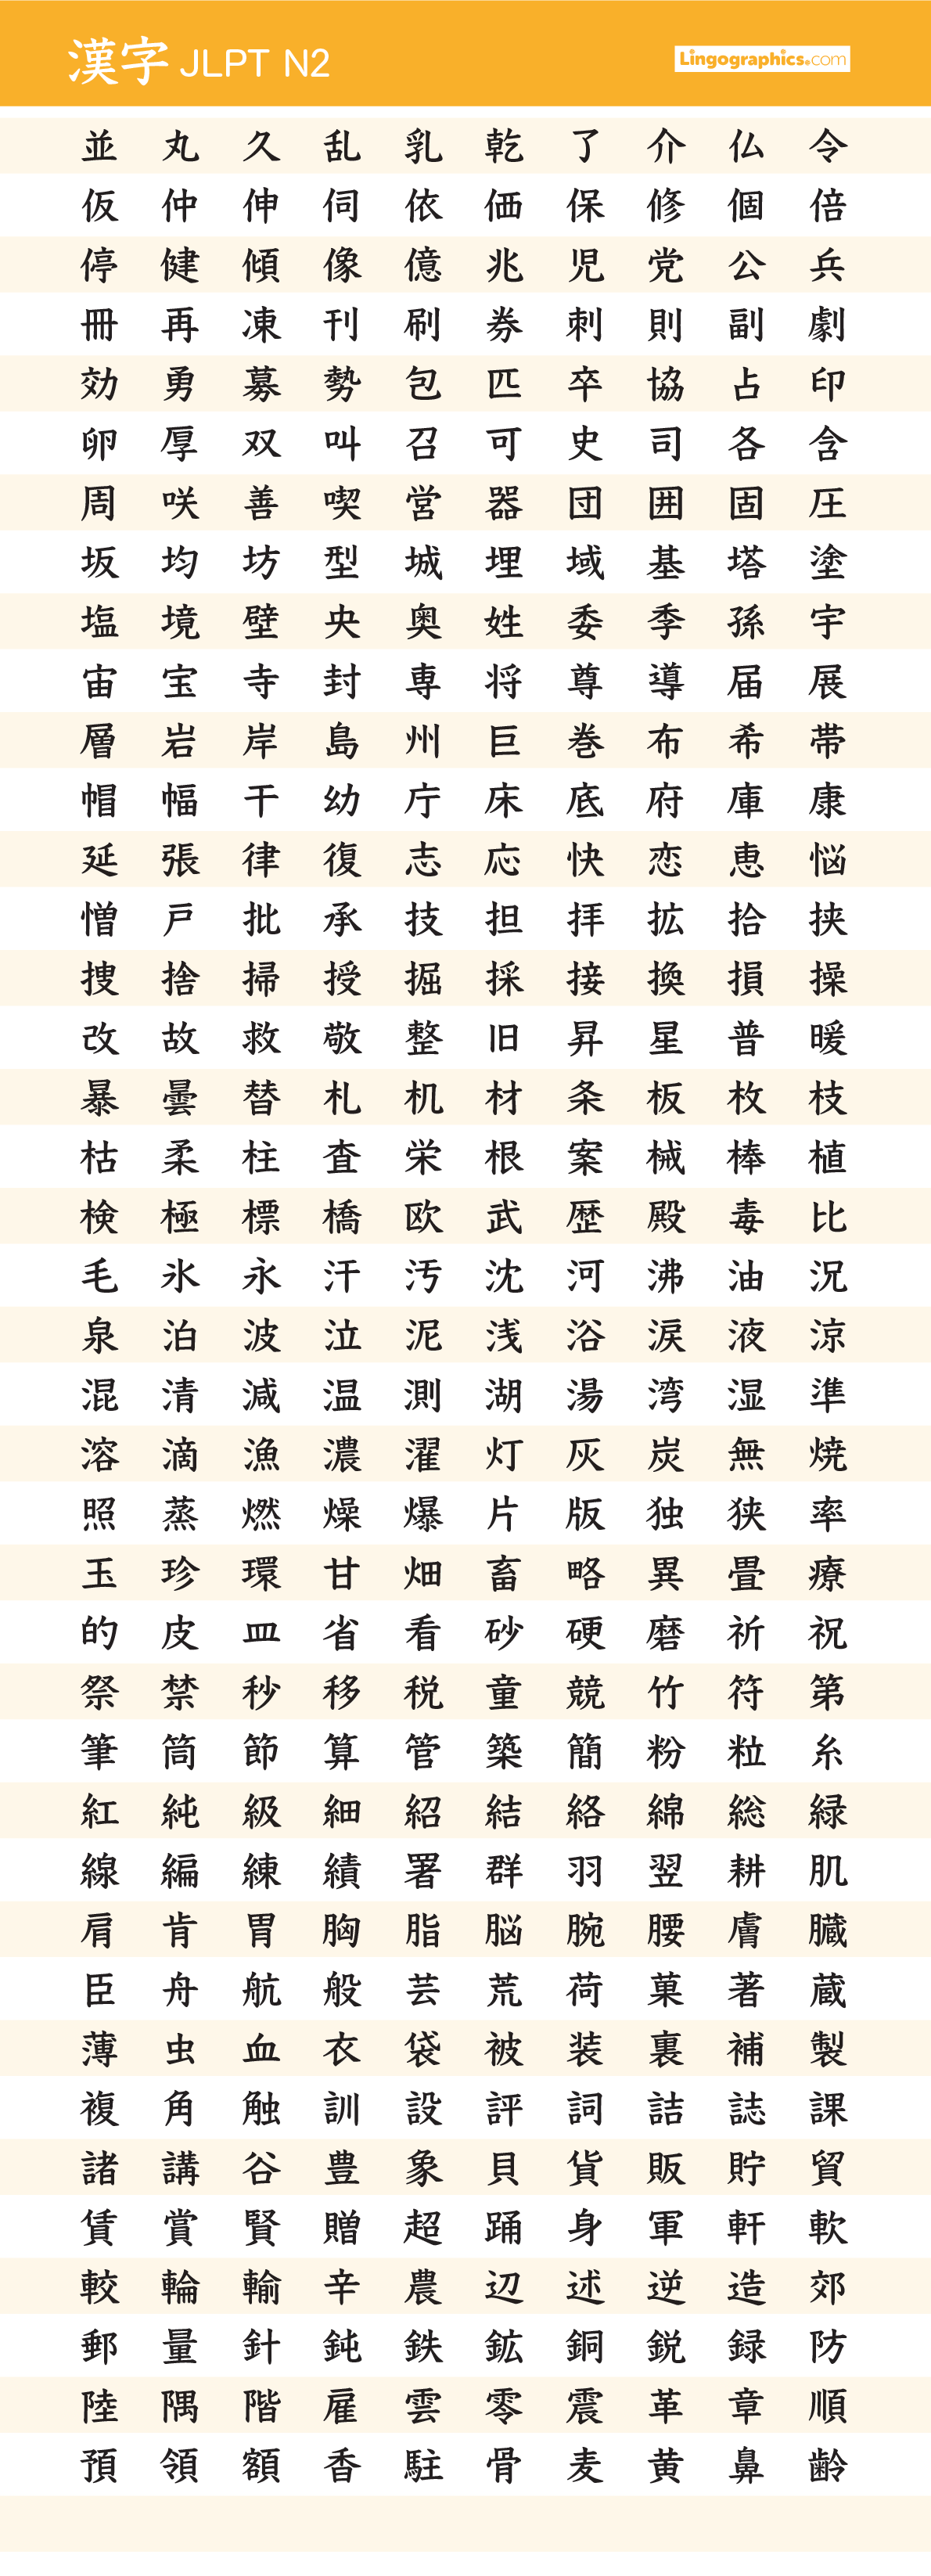 漢字 JLPT N2
Lingographics.com
並 丸 久 乱 乳 乾 了 介 仏 令
仮 仲 伸 伺 依 価 保 修 個 倍
停 健 傾 像 億 兆 児 党 公 兵
冊 再 凍 刊 刷 券 刺 則 副 劇
効 勇 募 勢 包 匹 卒 協 占 印
卵 厚 双 叫 召 可 史 司 各 含
周 咲 善 喫 営 器 団 囲 固 圧
坂 均 坊 型 城 埋 域 基 塔 塗
塩 境 壁 央 奥 姓 委 季 孫 宇
宙 宝 寺 封 専 将 尊 導 届 展
層 岩 岸 島 州 巨 巻 布 希 帯
帽 幅 干 幼 庁 床 底 府 庫 康
延 張 律 復 志 応 快 恋 恵 悩
憎 戸 批 承 技 担 拝 拡 拾 挟
捜 捨 掃 授 掘 採 接 換 損 操
改 故 救 敬 整 旧 昇 星 普 暖
暴 曇 替 札 机 材 条 板 枚 枝
枯 柔 柱 査 栄 根 案 械 棒 植
検 極 標 橋 欧 武 歴 殿 毒 比
毛 氷 永 汗 汚 沈 河 沸 油 況
泉 泊 波 泣 泥 浅 浴 涙 液 涼
混 清 減 温 測 湖 湯 湾 湿 準
溶 滴 漁 濃 濯 灯 灰 炭 無 焼
照 蒸 燃 燥 爆 片 版 独 狭 率
玉 珍 環 甘 畑 畜 略 異 畳 療
的 皮 皿 省 看 砂 硬 磨 祈 祝
祭 禁 秒 移 税 童 競 竹 符 第
筆 筒 節 算 管 築 簡 粉 粒 糸
紅 純 級 細 紹 結 絡 綿 総 緑
線 編 練 績 署 群 羽 翌 耕 肌
肩 肯 胃 胸 脂 脳 腕 腰 膚 臓
臣 舟 航 般 芸 荒 荷 菓 著 蔵
薄 虫 血 衣 袋 被 装 裏 補 製
複 角 触 訓 設 評 詞 詰 誌 課
諸 講 谷 豊 象 貝 貨 販 貯 貿
賃 賞 賢 贈 超 踊 身 軍 軒 軟
較 輪 輸 辛 農 辺 述 逆 造 郊
郵 量 針 鈍 鉄 鉱 銅 鋭 録 防
陸 隅 階 雇 雲 零 震 革 章 順
預 領 額 香 駐 骨 麦 黄 鼻 齢